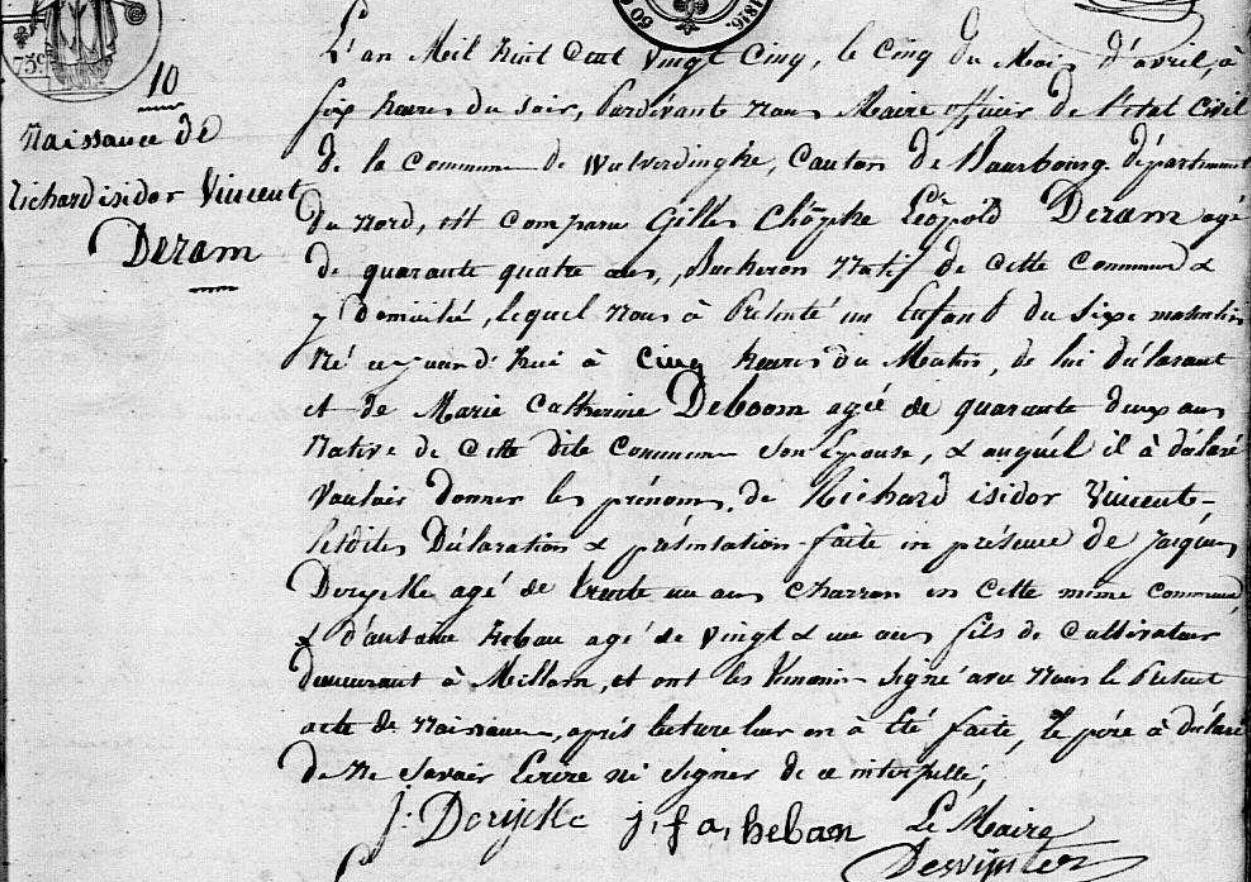 75c
50
1816.
10
Naissance de
Richard isidor Vincent
Deram
L'an Mil huit Cent vingt Cinq, le Cinq du Mois d'avril, à
six heures du soir, Pardevant Nous Maire officier de l'état Civil
de la Commune de Wulverdinghe, Canton de Bourbourg département
du Nord, est comparu Gilles Chõphe Léopold Deram agé
de quarante quatre ans, Bucheron Natif de Cette Commune &
y domicilié, lequel Nous à Présenté un Enfant du sixe masculin
Né cejourd'hui à Cinq heures du Matin, de lui déclarant
et de Marie Catherine Deboom agée de quarante deux ans
Native de Cette dite Commune son Epouse, & auquél il à déclaré
Vouloir donner les prénoms, de Richard isidor Vincent-
Lesdites Déclaration & présentation faite en présence de Jacques
Derycke agé de trente un ans charron en Cette même Commune,
& d'antoine heban agé de vingt & un ans fils de Cultivateur
demeurant à Millam, et ont les témoins signé avec Nous le Présent
acte de Naissance, après lecture leur en à été faite, le pére à déclaré
de Ne savoir Ecrire ni signer de ce interpellé,
j: Derycke j, f a, heban Le Maire
Deswijnter